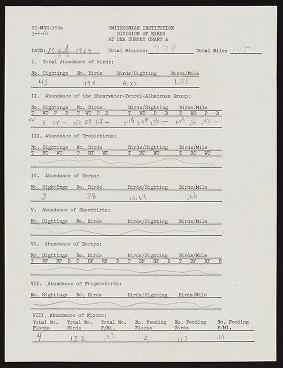 SMITHSONIAN INSTITUTION
DIVISION OF BIRDS
AT SEA SURVEY CHART A
DATE: July 1964 Total Minutes: 779 Total Miles
I. Total Abundance of birds:
No. Sightings No. Birds Birds/Sighting Birds/Mile
45 190 4.22 1.31
II. Abundance of the Shearwater-Petrel-Albatross Group:
No. Sightings No. Birds Birds/Sighting Birds/Mile
T WT P B T WT P B T WT P B T WT P B
III. Abundance of Tropicbirds:
No. Sightings No. Birds Birds/Sighting Birds/Mile
T RT WT T RT WT T RT WT T RT WT
IV. Abundance of Terns:
No. Sightings No. Birds Birds/Sighting Birds/Mile
3 38 12.67 .26
V. Abundance of Shorebirds:
No. Sightings No. Birds Birds/Sighting Birds/Mile
VI. Abundance of Boobys:
No. Sightings No. Birds Birds/Sighting Birds/Mile
T BF RF B T BF RF B T BF RF B T BF RF B
VII. Abundance of Frigatebirds:
No. Sightings No. Birds Birds/Sighting Birds/Mile
VIII. Abundance of Flocks:
Total No. Total No. Total No. No. Feeding No. Feeding No. Feeding
Flocks Birds F/Mi. Flocks Birds F/Mi.
4 132 .03 2 117 .01